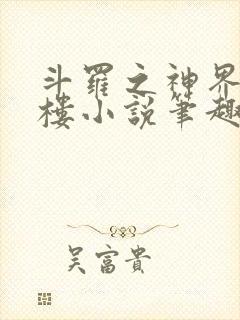 斗羅之神界
樓小說筆趣
吴富貴